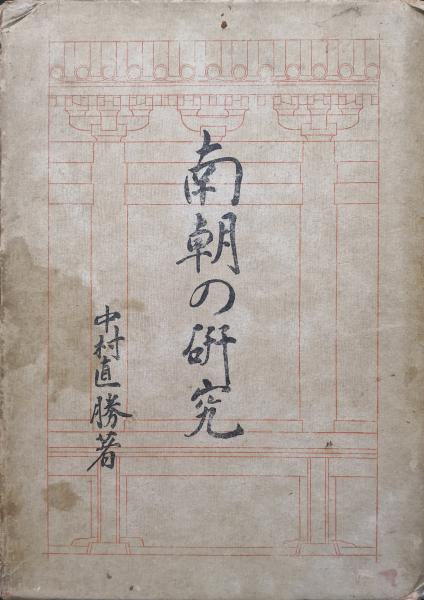 南朝の研究
中村直勝著